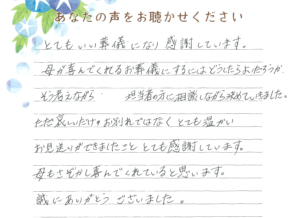 あなたの声をお聴かせください
とてもいい葬儀になり感謝しています。
母が喜んでくれるお葬儀にするにはどうしたらよいだろうか
そう考えながら 担当の方に相談しながら決めていきました。
ただ哀しいだけのお別れではなく とても温かい
お見送りができましたこと とても感謝しています。
母もさぞかし喜んでくれていると思います。
誠にありがとうございました。